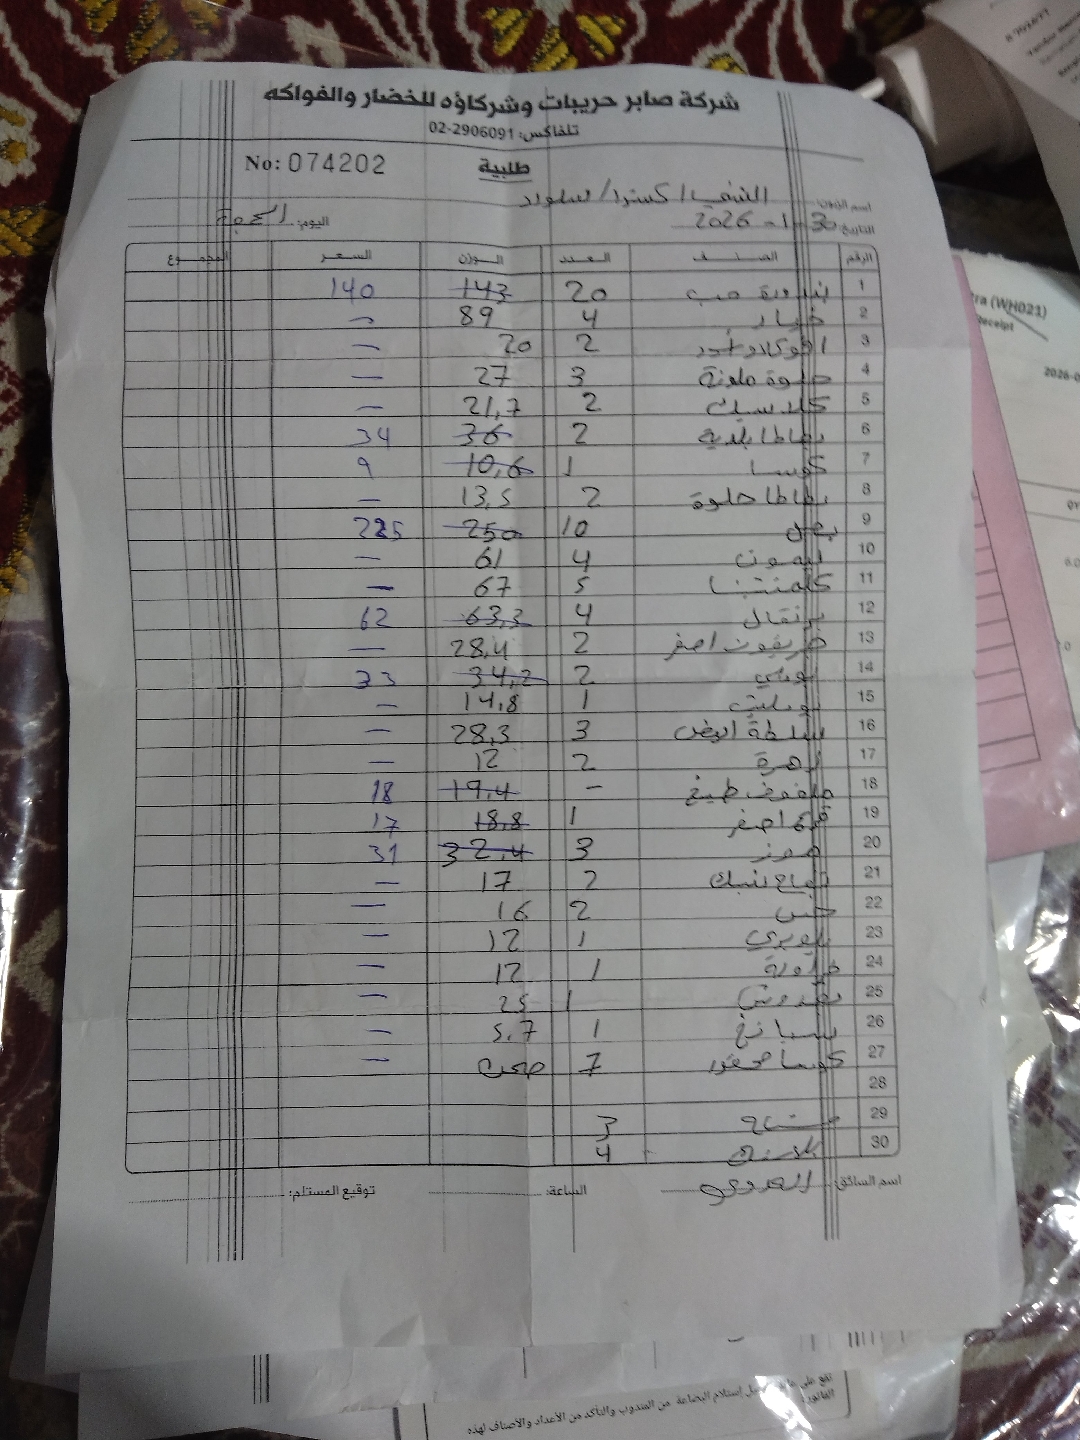 شركة صابر حريبات وشركاؤه للخضار والفواكه
تلفاكس: 02-2906091
No: 074202 طلبية
اسم الزبون: الشني / كسترا / سلواد
التاريخ: 30-1-2026 اليوم: الجمعة
الرقم الصنف العدد الوزن السعر المجموع
1 بندورة حب 20 143 140
2 خيار 4 89 -
3 افوكادو 2 20 -
4 حلوة ملونة 3 27 -
5 كلاسيك 2 21,7 -
6 بطاطا بلدية 2 36 34
7 كوسا 1 10,6 9
8 بطاطا حلوة 2 13,5 -
9 بصل 10 250 225
10 ليمون 4 61 -
11 كلمنتينا 5 67 -
12 برتقال 4 63,3 62
13 جريفوت اصفر 2 28,4 -
14 بوملي 2 34,2 33
15 1 14,8 -
16 سلطة ابيض 3 28,3 -
17 زهرة 2 12 -
18 ملفوف طبيخ - 19,4 18
19 قرع اصفر 1 18,8 17
20 موز 3 32,4 31
21 تفاح 2 17 -
22 خس 2 16 -
23 1 12 -
24 فراولة 1 12 -
25 بقدونس 1 25 -
26 سبانخ 1 5,7 -
27 كوسا محفور 7 صحن -
28
29 مشتاح 3
30 4
اسم السائق: الساعة: توقيع المستلم:
(WH021)
Receipt
2026-0
QT
6.0
إستلام البضاعة من المندوب والتأكد من الأعداد والأصناف لهذه
الفاتورة